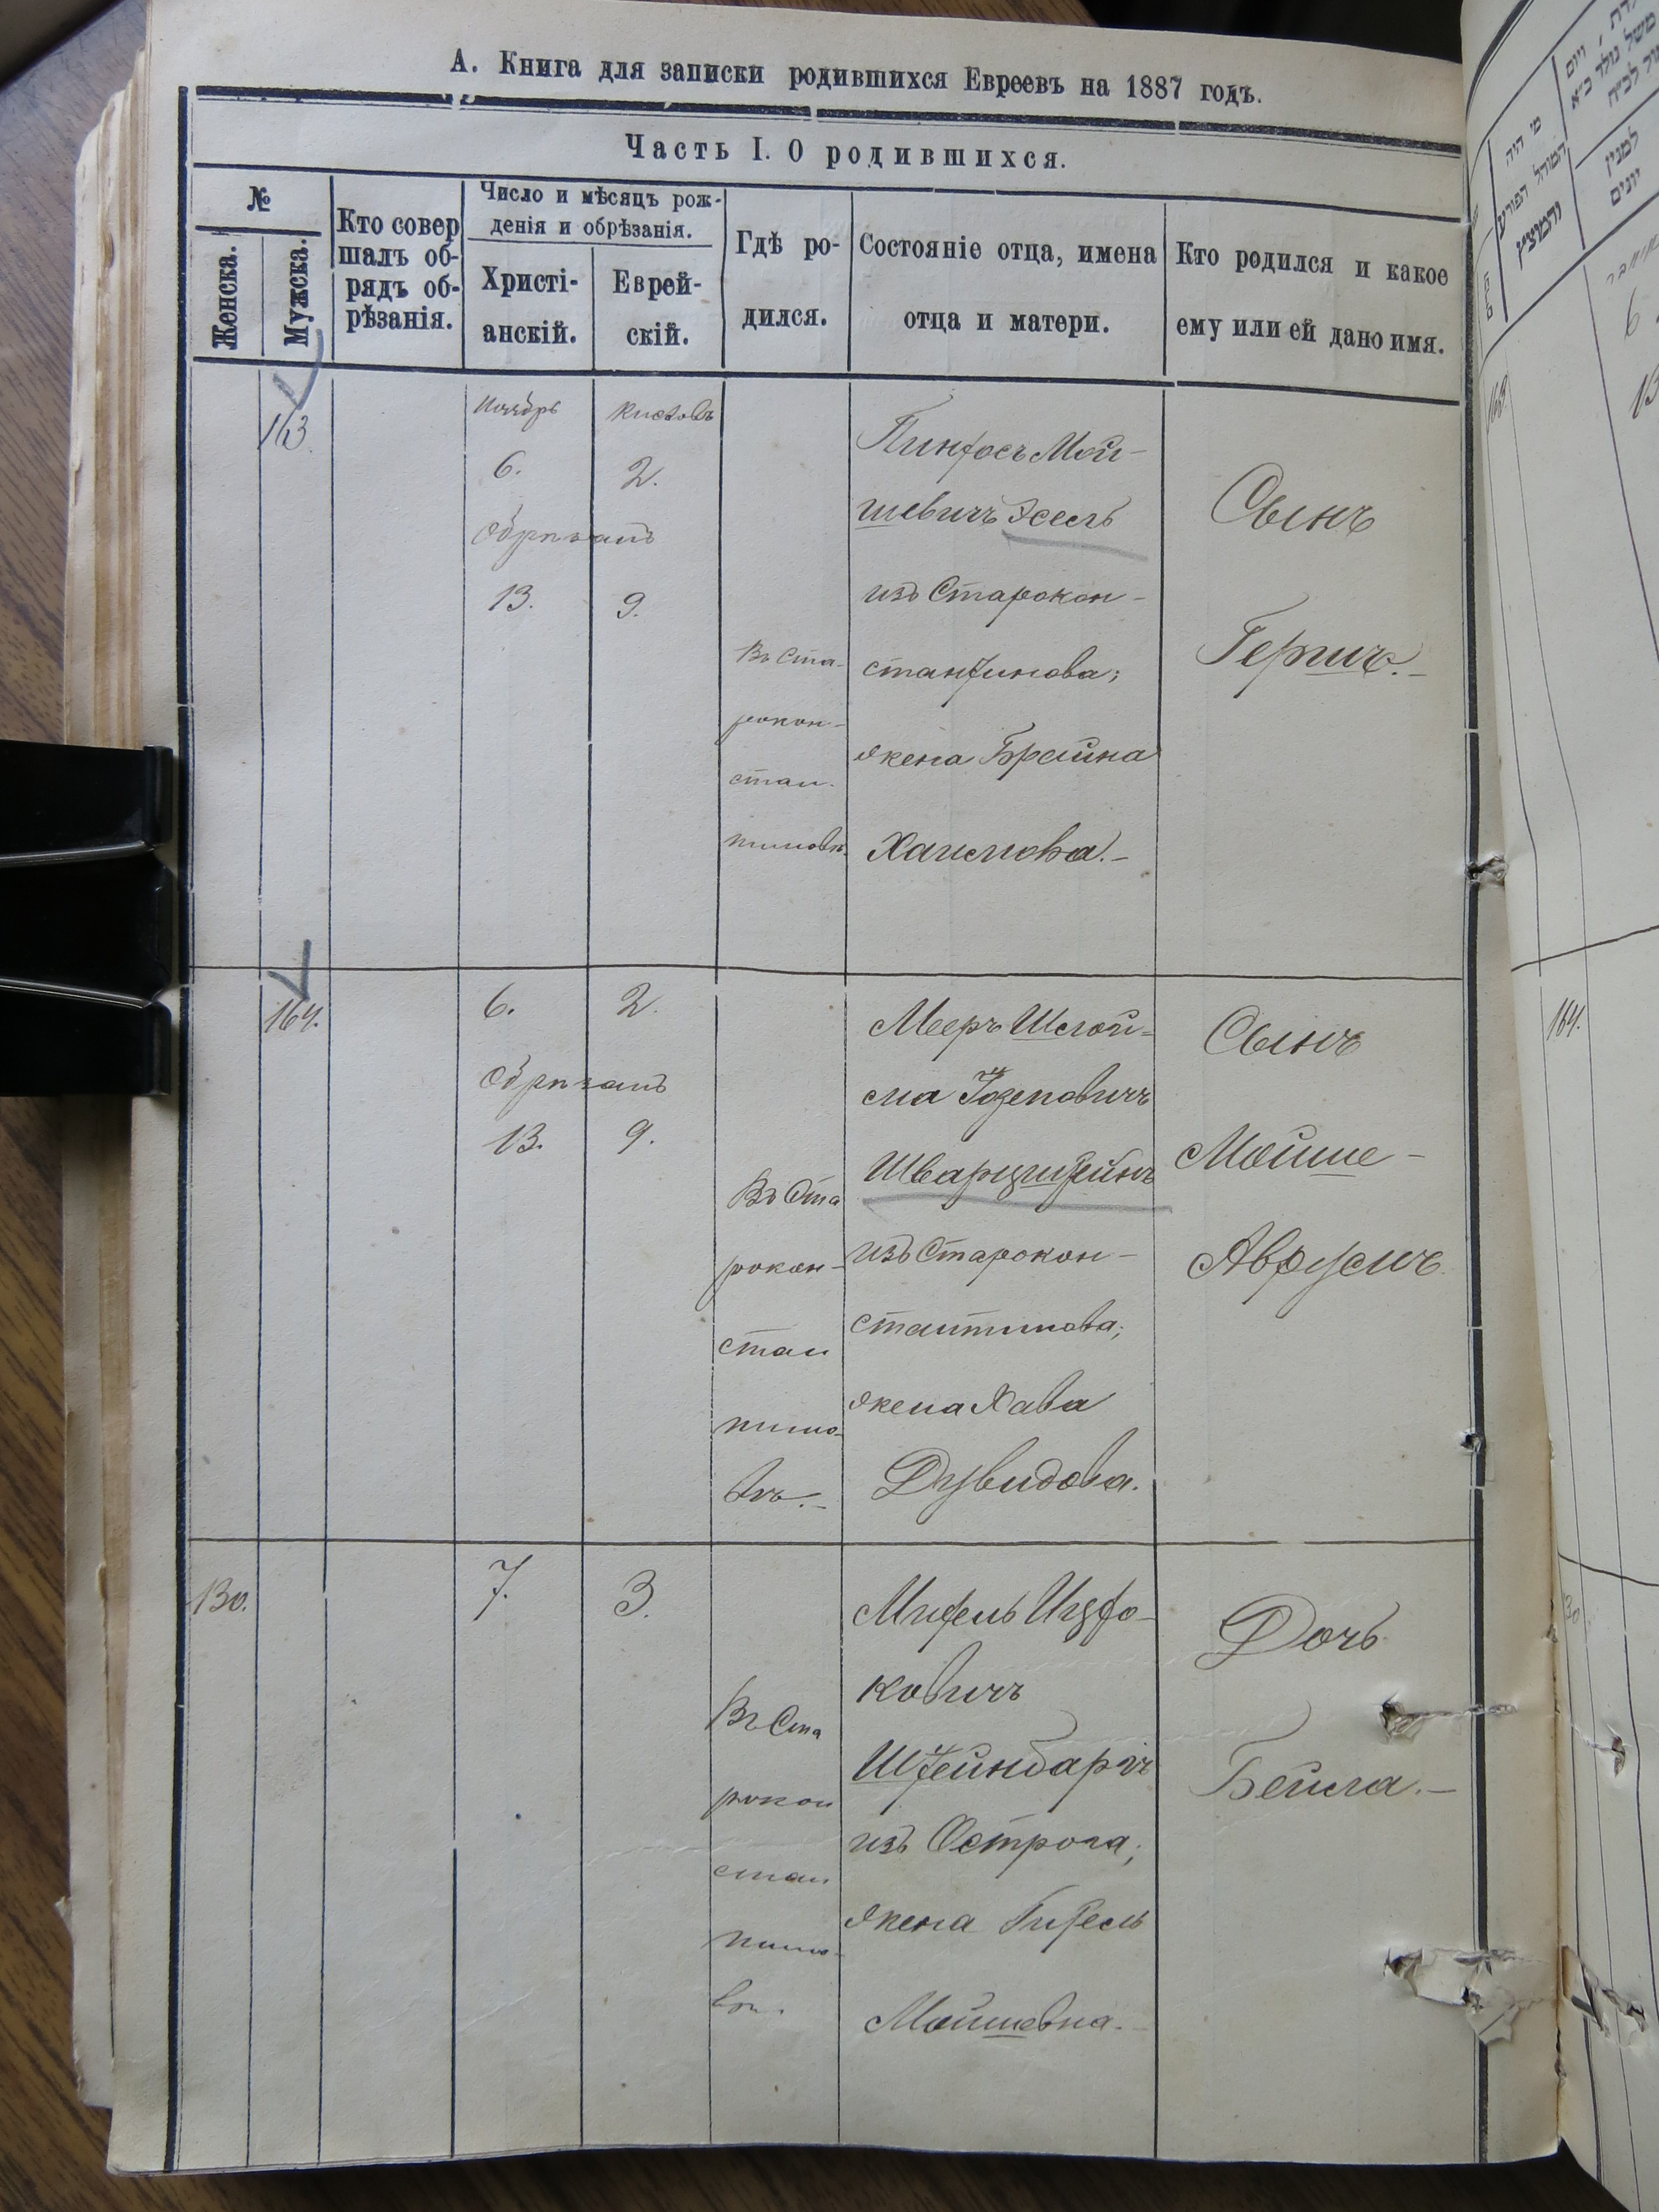 А. Книга для записки родившихся Евреевъ на 1887 годъ.
Часть I. О родившихся.
№
Женска.
Мужска.
Кто совер
шалъ об-
рядъ об-
рѣзанія.
Число и мѣсяцъ рож-
денія и обрѣзанія.
Христі-
анскій.
Еврей-
скій.
Гдѣ ро-
дился.
Состояніе отца, имена
отца и матери.
Кто родился и какое
ему или ей дано имя.
163
Ноябрь
6.
Обрѣзанъ
13.
Кислевъ
2.
9.
Въ Ста-
рокон-
стан-
тиновѣ.
Пинхосъ Мой-
шевичъ
изъ Старокон-
стантинова;
жена Брайна
Хаимова.-
Сынъ
Гершъ.-
164.
6.
Обрѣзанъ
13.
2.
9.
Въ Ста
рокон-
стан
тино-
вѣ.-
Мееръ Шлой-
ма Іозеповичъ
Шварцштейнъ
изъ Старокон-
стантинова;
жена Хава
Дувидова.
Сынъ
Мойше-
Аврумъ
130.
7.
3.
Въ Ста
рокон
стан
тино-
вѣ.
ковичъ
Штейнбаргъ
изъ Острога;
жена Гитель
Мойшевна.-
Дочь
Бейла.-
164.